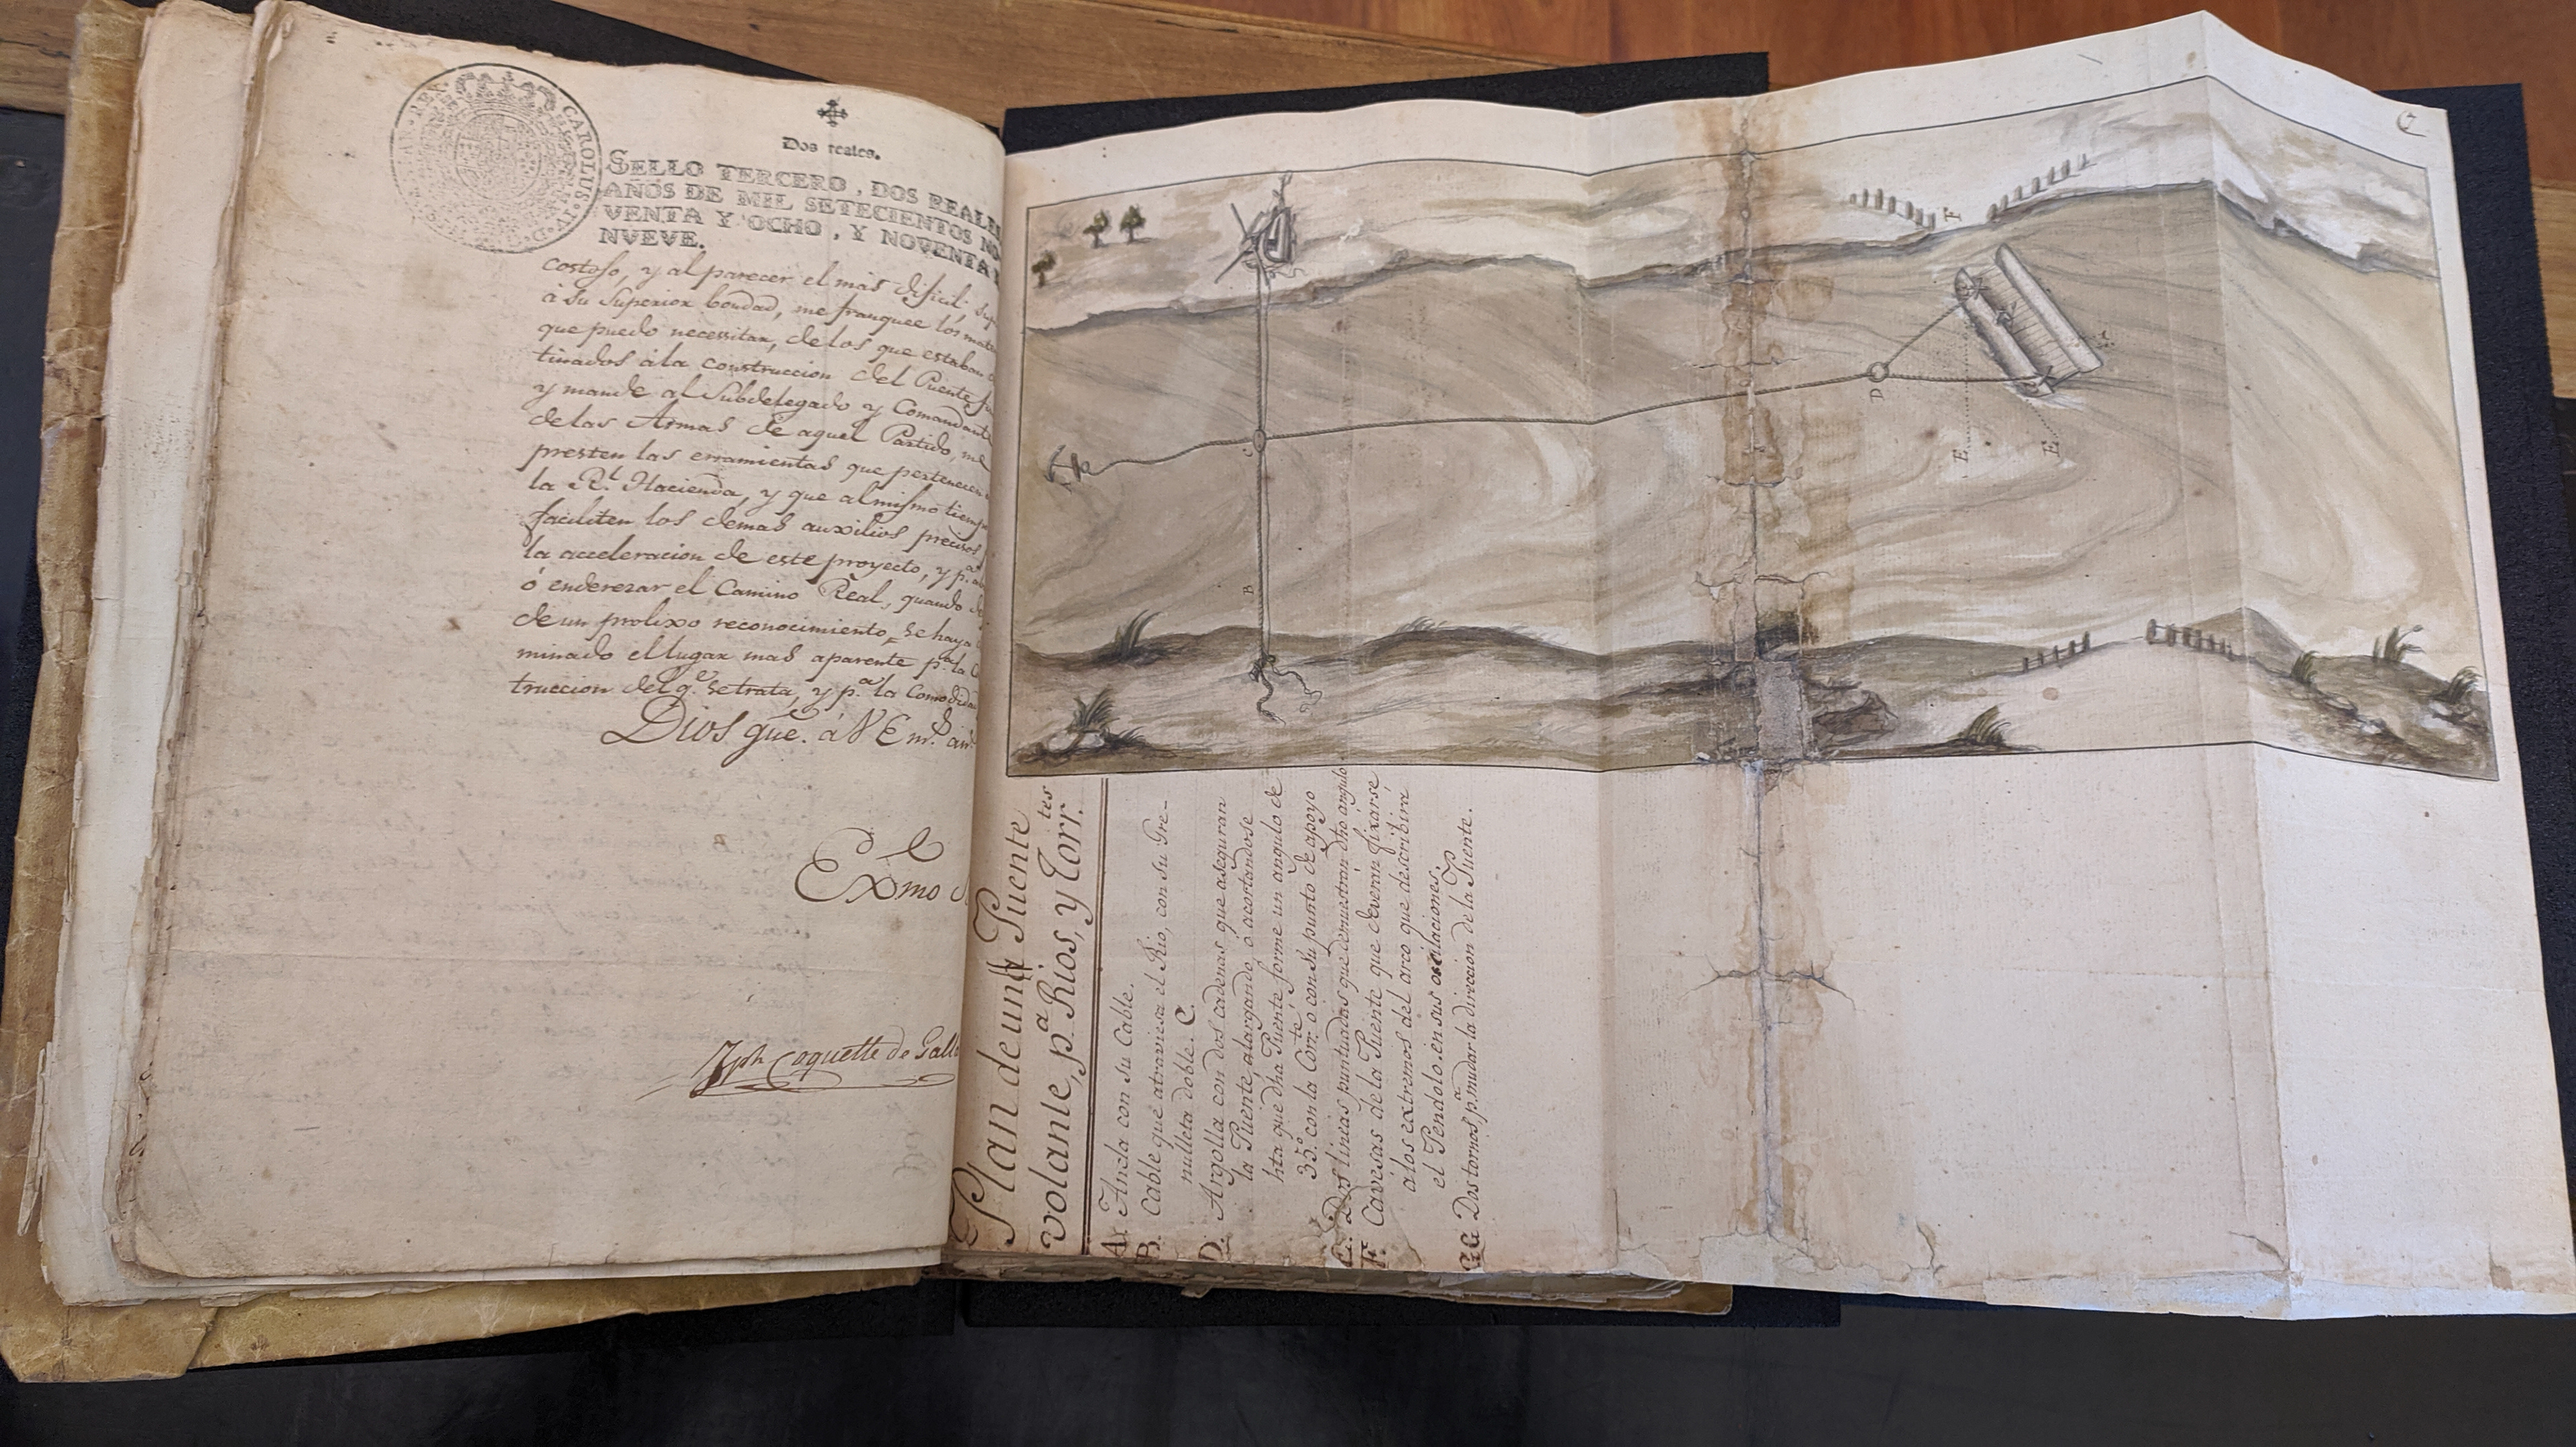 CAROLUS · IV · D · G ·
AN · REX ·
Dos reales.
SELLO TERCERO, DOS REALES
AÑOS DE MIL SETECIENTOS NO
VENTA Y OCHO, Y NOVENTA Y
NVEVE.
costoso, y al parecer el mas dificil, sup
à su Superior bondad, me franquee los mate
que puedo necessitar, de los que estaban
tinados à la construccion del Puente
y mande al Subdelegado y Comandante
de las Armas de aquel Partido, me
presten las erramientas que pertenecen
la Rl. Hacienda, y que al mismo tiemp
faciliten los demas auxilios precisos
la acceleracion de este proyecto, y pa.
ó enderezar el Camino Real, quando
de un prolixo reconocimiento, se haya
minado el lugar mas aparente pa. la
truccion del qe. se trata, y pa. la Comodida
Dios gue. á V E ms. as
Exmo
Jph Coquette de Gall
Plan de una Puente
volante, pa. Rios, y Torr.tes
A. Ancla con su Cable.
B. Cable que atraviesa el Rio, con su Gre-
nulleta doble. C.
D. Argolla con dos cadenas que aseguran
la Puente, alargando, ó acortandose
hta que dha Puente forme un angulo de
35.° con la Corr.te, ó con su punto de apoyo
E. Dos lineas puntuadas que demuestran dho angulo.
F. Cavesas de la Puente que deveran fixarse
à los extremos del arco que describirá
el Pendolo en sus oscilaciones.
G.G. Dos tornos pa. mudar la direccion de la Puente.
C
B
D
E
E
F
C